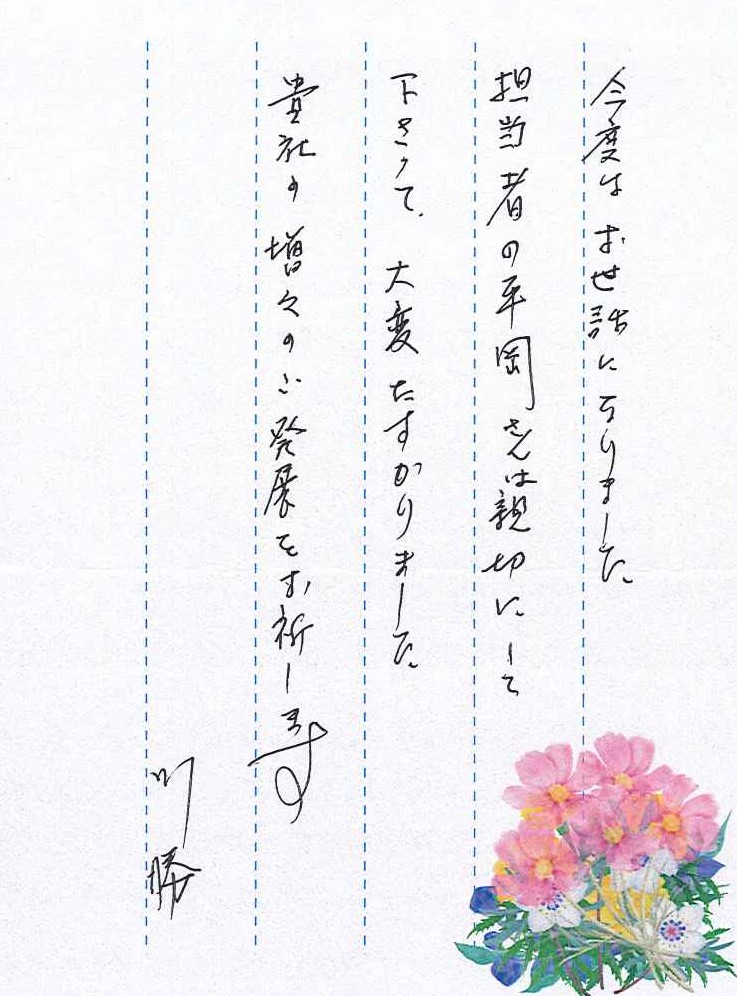 今度はお世話になりました。
担当者の平岡さんは親切にして
下さって、大変たすかりました。
貴社の増々のご発展をお祈します
川勝